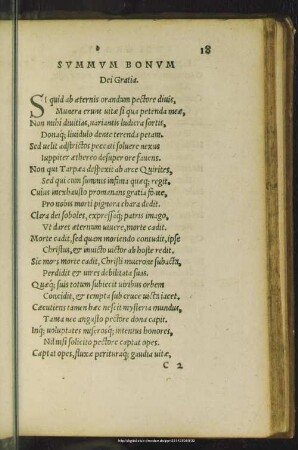 18
SVMMVM BONVM
Dei Gratia.
SI quid ab æternis orandum pectore diuis,
Munera erunt uitæ si qua petenda meæ,
Non mihi diuitias, uariantis ludicra sortis,
Donaq; liuidulo dente terenda petam.
Sed uelit adstrictos peccati soluere nexus
Iuppiter æthereo desuper ore fauens.
Non qui Tarpæa despexit ab arce Quirites,
Sed qui cum summis infima quæq; regit.
Cuius inexhausto promanans gratia fonte,
Pro nobis morti pignora chara dedit.
Clara dei soboles, expressaq; patris imago,
Vt daret æternum uiuere, morte cadit.
Morte cadit, sed quam moriendo contudit, ipse
Christus, & inuicto uictor ab hoste redit.
Sic mors morte cadit, Christi mucrone subacta,
Perdidit & uires debilitata suas.
Quæq; suis totum subiecit uiribus orbem
Concidit, & tempta sub cruce uicta iacet.
Cæcutiens tamen hæc nescit mysteria mundus,
Tanta nec angusto pectore dona capit.
Inq; uoluptates miseroq; intentus honores,
Nil nisi solicito pectore captat opes.
Captat opes, fluxæ perituraq; gaudia uitæ,
C 2